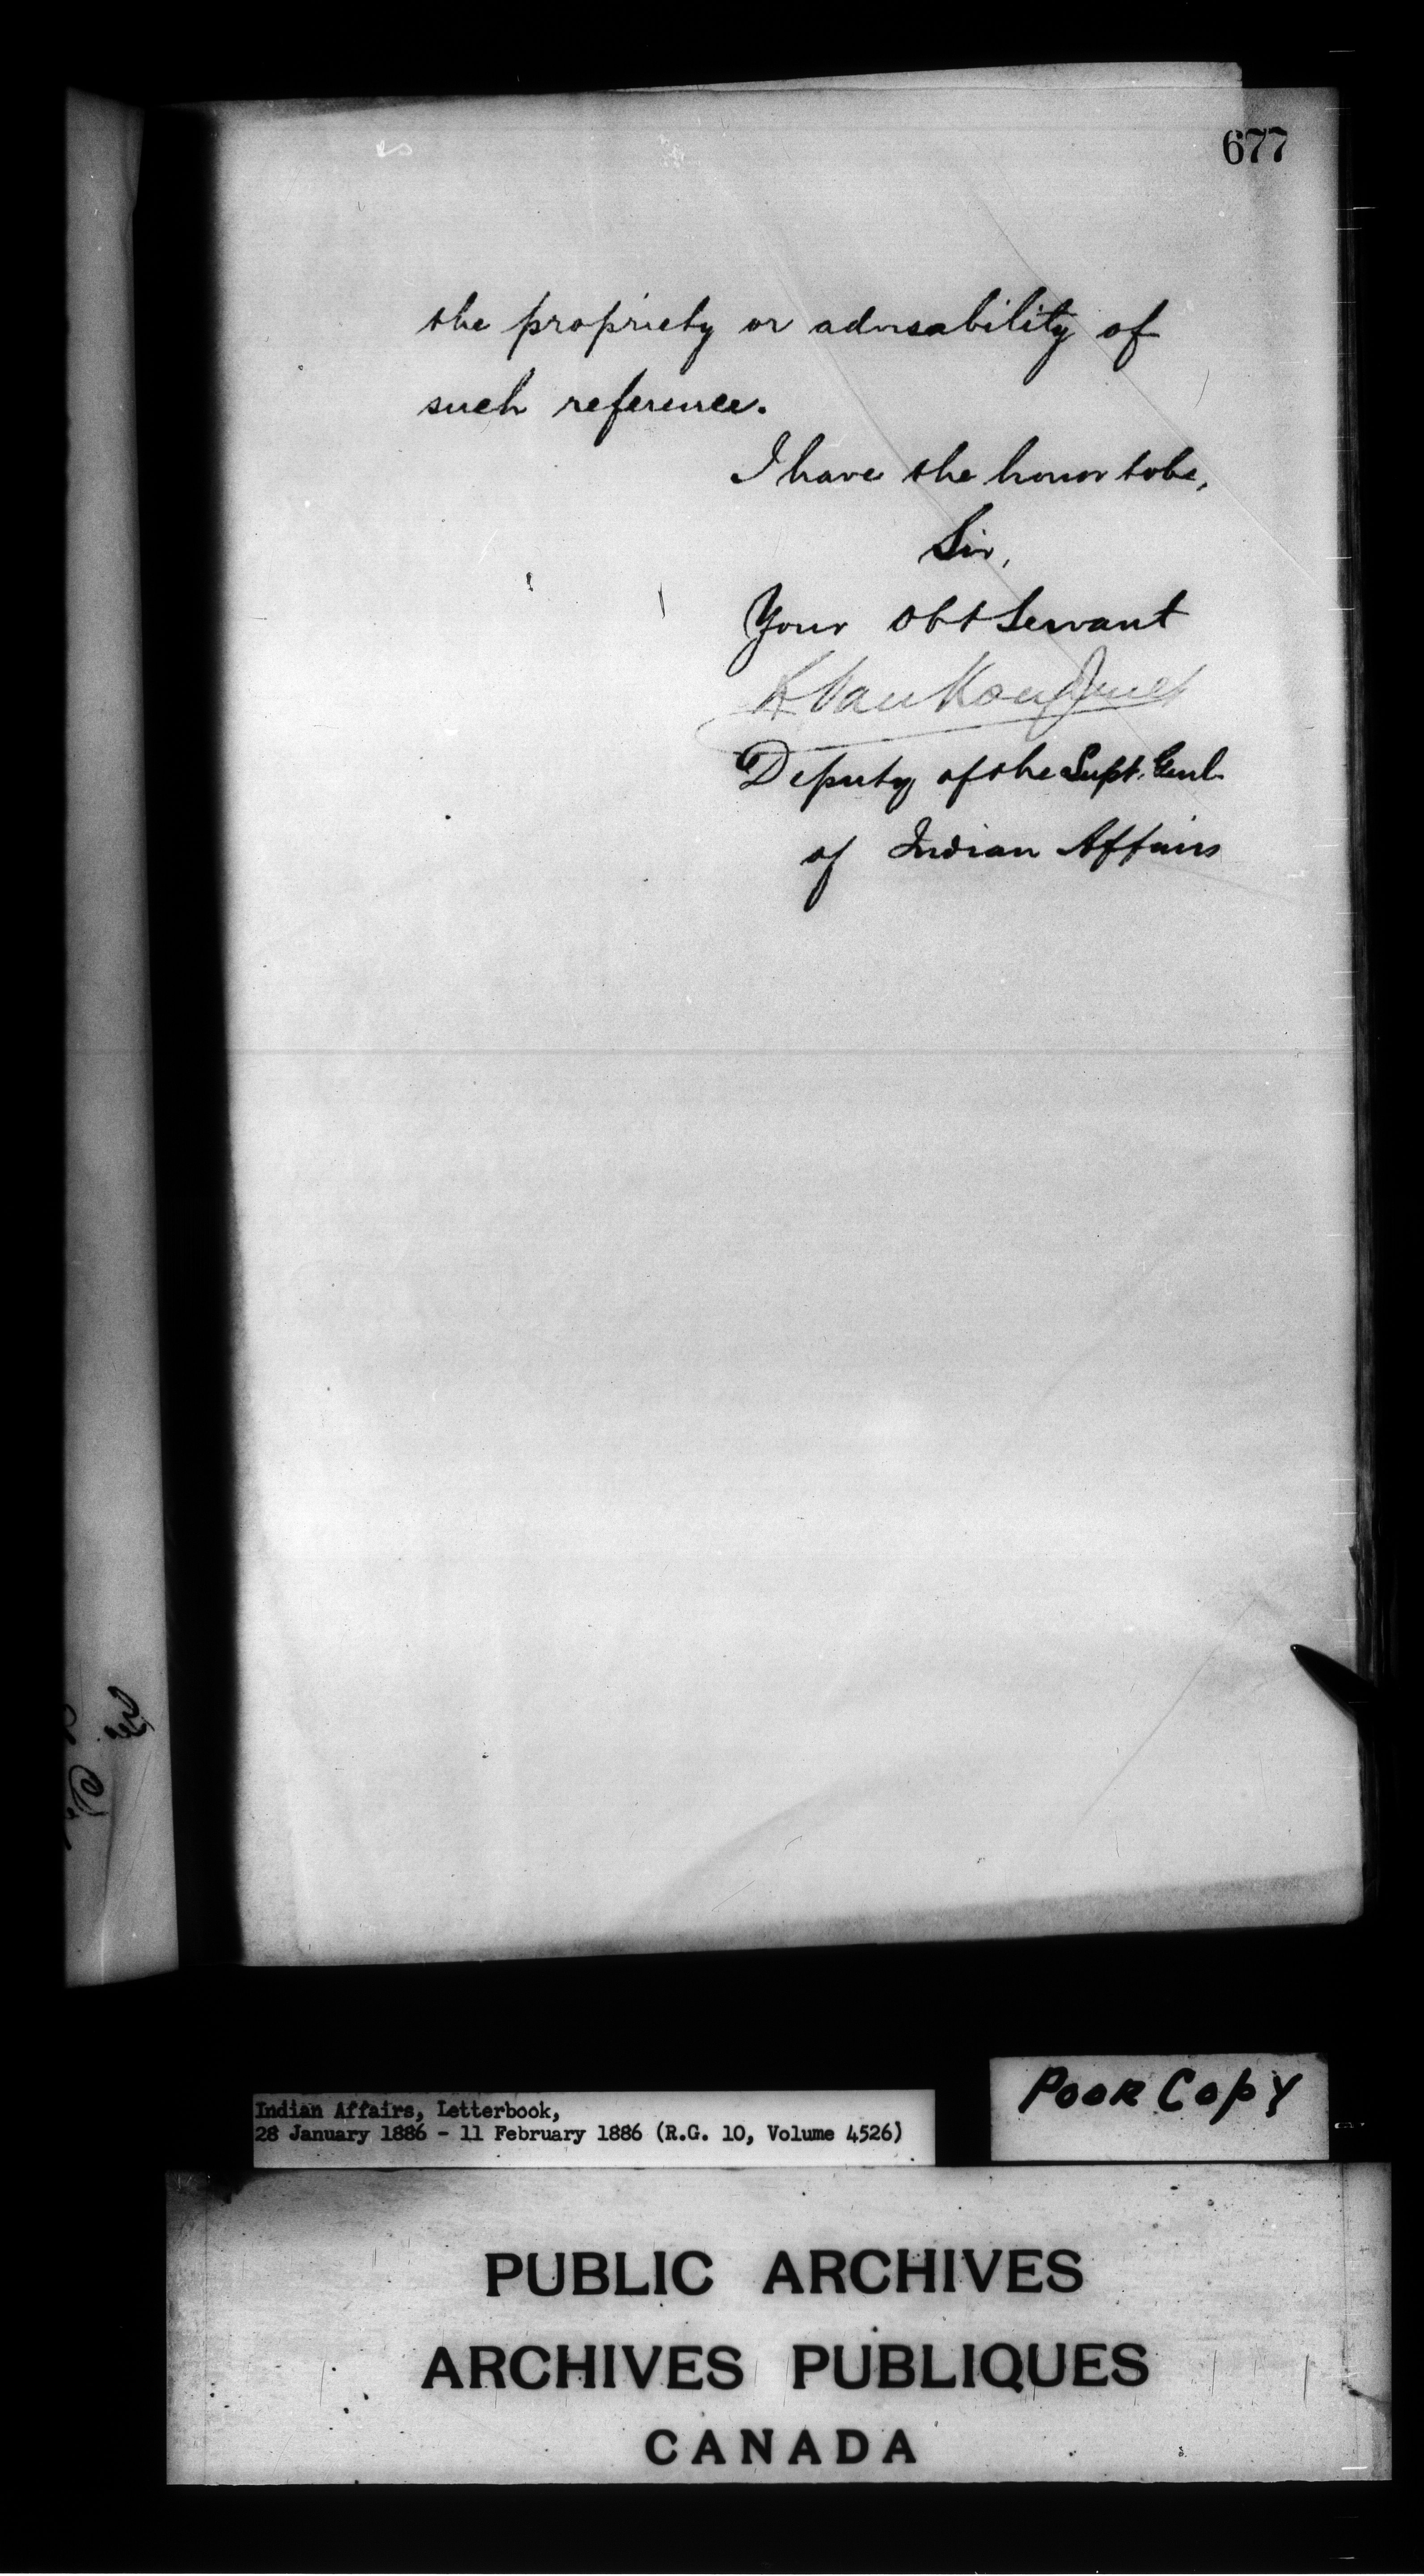 677
the propriety or advisability of
such reference.
I have the honor to be,
Sir,
Your Obt Servant
L VanKoughnet
Deputy of the Supt. Genl.
of Indian Affairs
Indian Affairs, Letterbook,
28 January 1886 - 11 February 1886 (R.G. 10, Volume 4526)
POOR COPY
PUBLIC ARCHIVES
ARCHIVES PUBLIQUES
CANADA